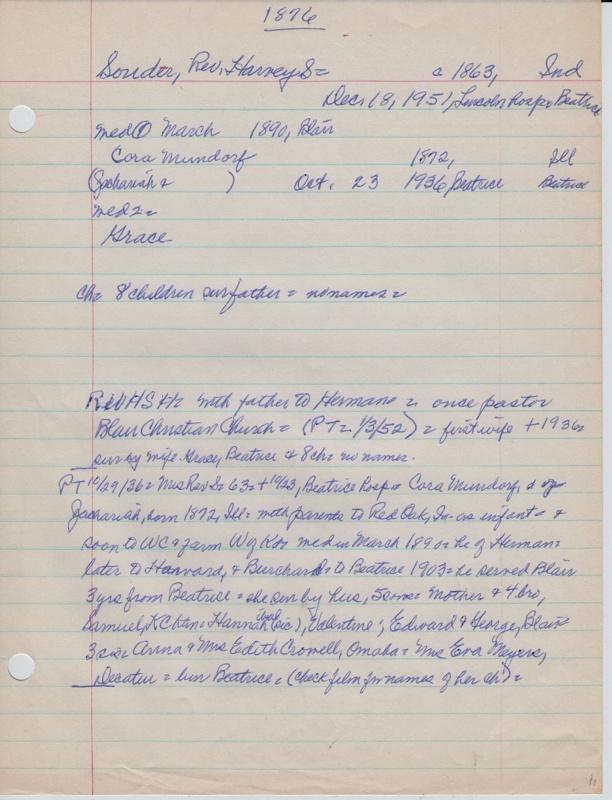 1876
Souder, Rev. Harvey S= c 1863, Ind
Dec. 18, 1951, Lincoln Hosp + Beatrice
med ① March 1890, Blair
Cora Mundorf 1872, Ill
(Zachariah & ) Oct. 23 1936 Beatrice Beatrice
med 2 =
Grace
Ch= 8 children sur father = no names =
Rev HS H= with father to Hermane = once pastor
Blair Christian Church = (PT = 1/3/52) = first wife + 1936=
sur by wife Grace, Beatrice & 8 ch = no names.
PT 10/29/36 = Mrs Rev S= 63 = + 10/23, Beatrice Hosp = Cora Mundorf, d of
Zachariah, born 1872, Ill = with parents to Red Oak, Ia as infant = &
soon to WC & farm W of K = med in March 1890 = he of Herman =
later to Harvard, & Burchard = to Beatrice 1903 = he served Blair
3 yrs from Beatrice = she sur by hus, 5 sons = Mother & 4 bro,
Samuel, K Chan = Hannah (sic), Valentine, Edward & George, Blair
3 sis = Anna & Mrs Edith Crowell, Omaha = Mrs Eva Meyers,
Decatur = bur Beatrice = (check film for names of her ch) =